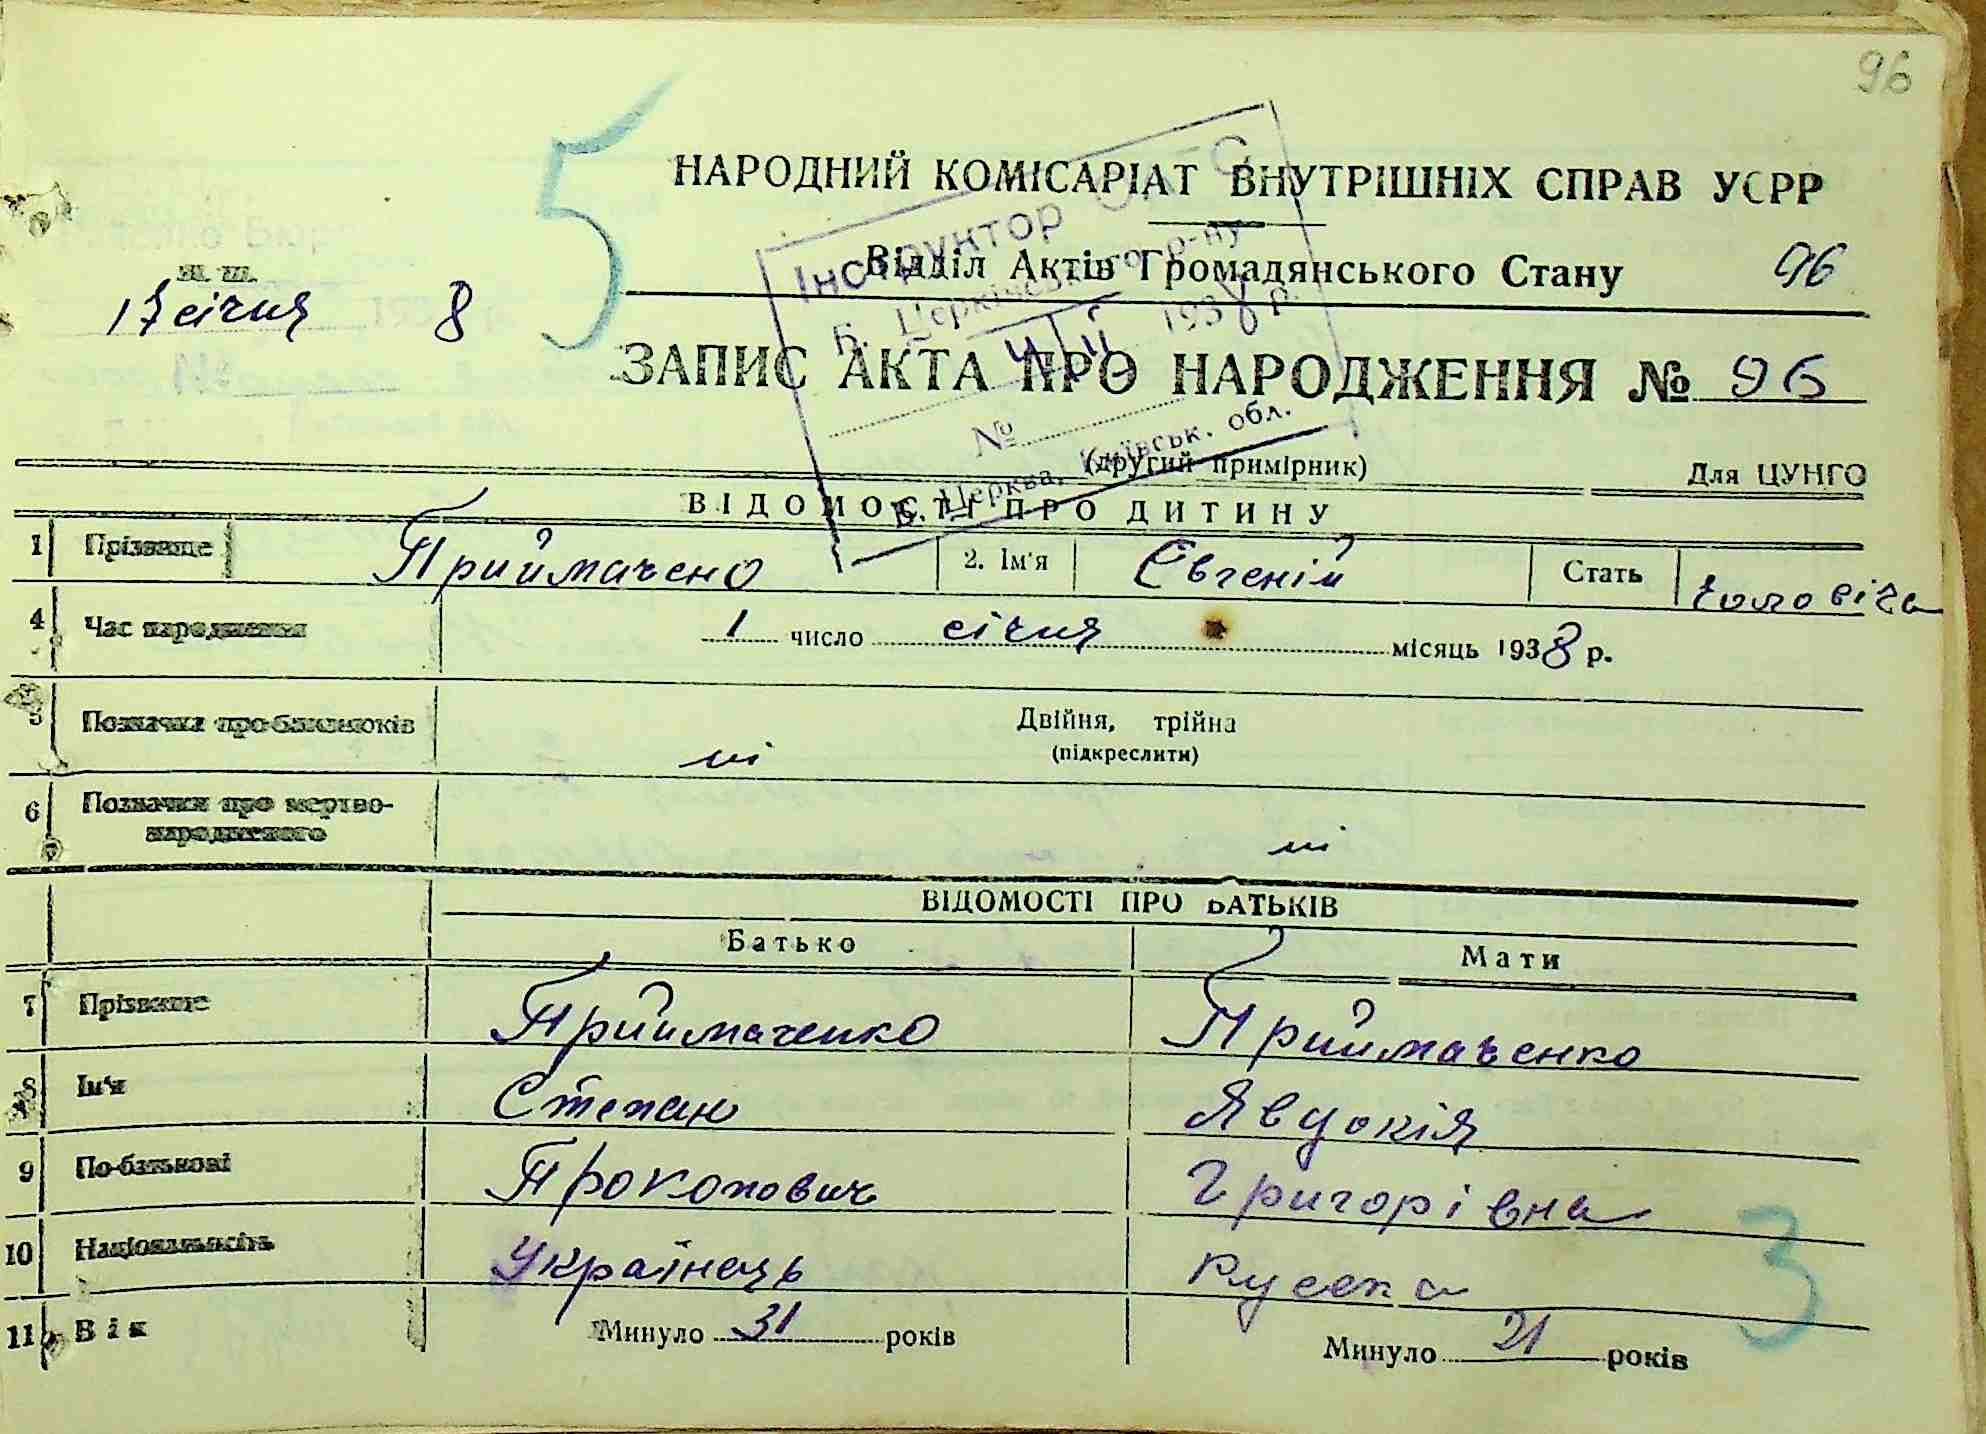 96
5
НАРОДНИЙ КОМІСАРІАТ ВНУТРІШНІХ СПРАВ УСРР
Відділ Актів Громадянського Стану 96
м. ш.
17 січня 193 8
Інструктор
Б. Церківського р-ну
193 8 р.
№
Б. Церква, Київськ. обл.
ЗАПИС АКТА ПРО НАРОДЖЕННЯ № 96
(другий примірник)
Для ЦУНГО
ВІДОМОСТІ ПРО ДИТИНУ
1 Прізвище Приймачено 2. Ім'я Євгеній Стать чоловіча
4 Час народження 1 число січня місяць 1938 р.
5 Позначка про близнюків Двійня, трійна
(підкреслити)
ні
6 Позначки про мертво-
народженого
ні
ВІДОМОСТІ ПРО БАТЬКІВ
Батько Мати
7 Прізвище Приймаченко Приймаченко
8 Ім'я Степан Явдокія
9 По-батькові Прокопович Григорівна
10 Національність Українець Руська
11 Вік Минуло 31 років Минуло 21 років
3